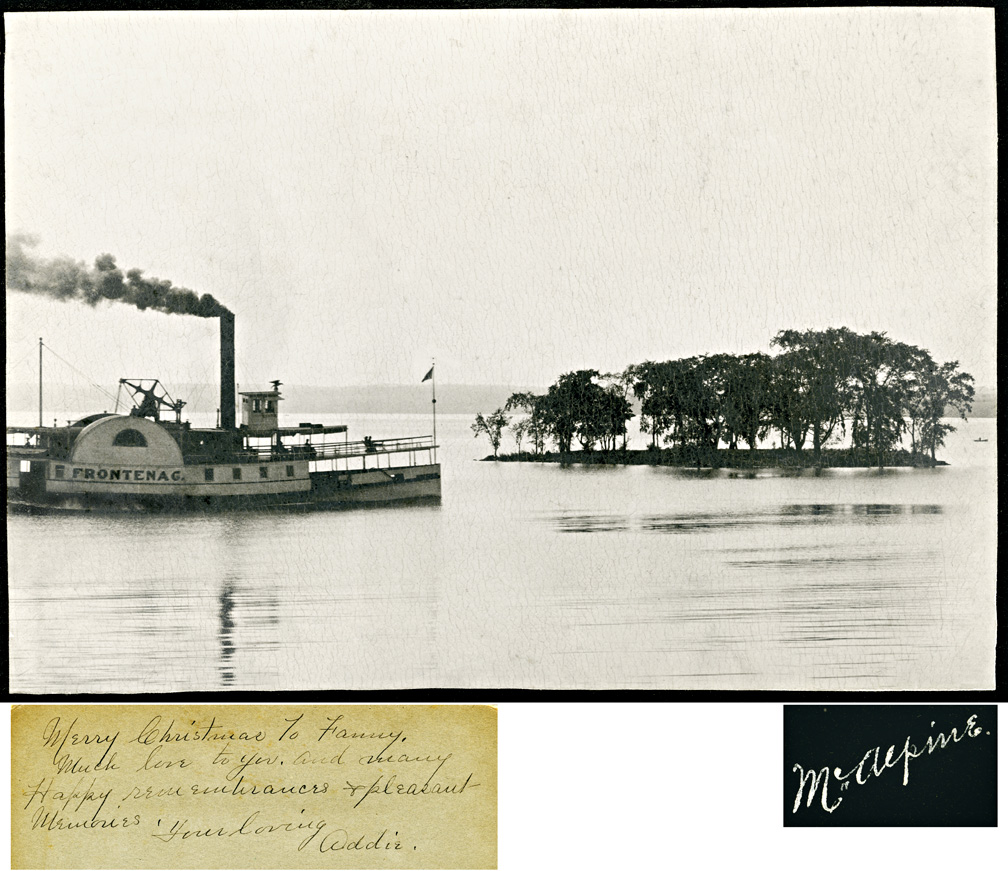 FRONTENAC.
Merry Christmas To Fanny.
Much love to you. and many
Happy rememberances & pleasant
Memories. Your loving
Addie.
McAlpine.